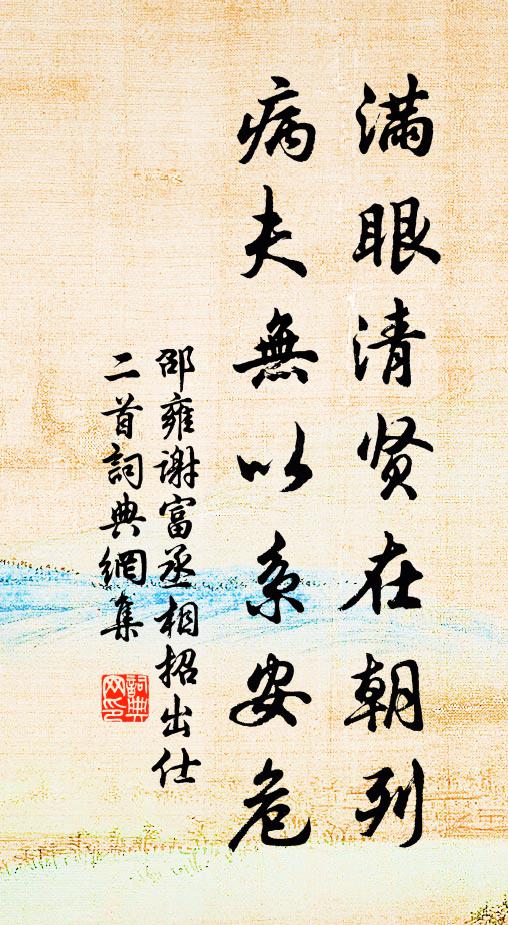 滿眼清贤在朝列
病夫無以系安危
邵雍谢富丞相招出仕
二首詞典網集
詞典
网印